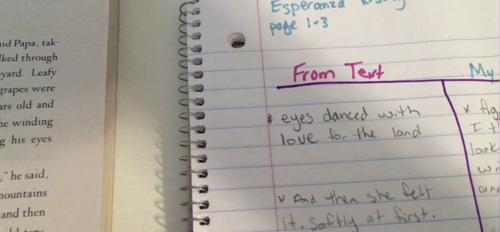 said Papa, tak-
lked through
yard. Leafy
grapes were
ars old and
he winding
g his eyes
" he said,
mountains
and then
Esperanza Rising
page 1-3
From Text
My
* eyes danced with
love for the land
And then she felt
it. Softly at first.
* fig
I t
look
wi
an